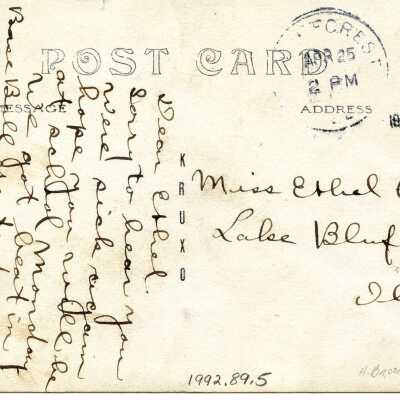 POST CARD
MESSAGE
ADDRESS
FOREST
APR 25
2 PM
19
Dear Ethel.
Sorry to hear you
were sick again
hope you will be
at Monday
we got beat in
Base Ball
KRUXO
Miss Ethel
Lake Bluf
Ill
1992.89.5